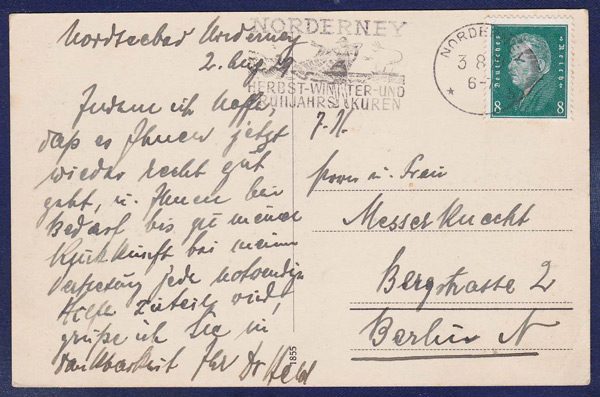 Nordseebad Norderney
2. Aug 29
Indem ich hoffe,
daß es Ihnen jetzt
wieder recht gut
geht, u. Ihnen bei
Bedarf bis zu meiner
Rückkunft bei meiner
Vertretung jede notwendige
Hilfe zuteil wird,
grüße ich Sie in
Dankbarkeit Ihr Dr Held
NORDERNEY
HERBST-WINTER-UND
FRÜHJAHRS KUREN
NORDERNEY
3 8
6-7
Deutsches Reich
8 8
Herrn u. Frau
Messerknecht
Bergstrasse 2
Berlin N
1855